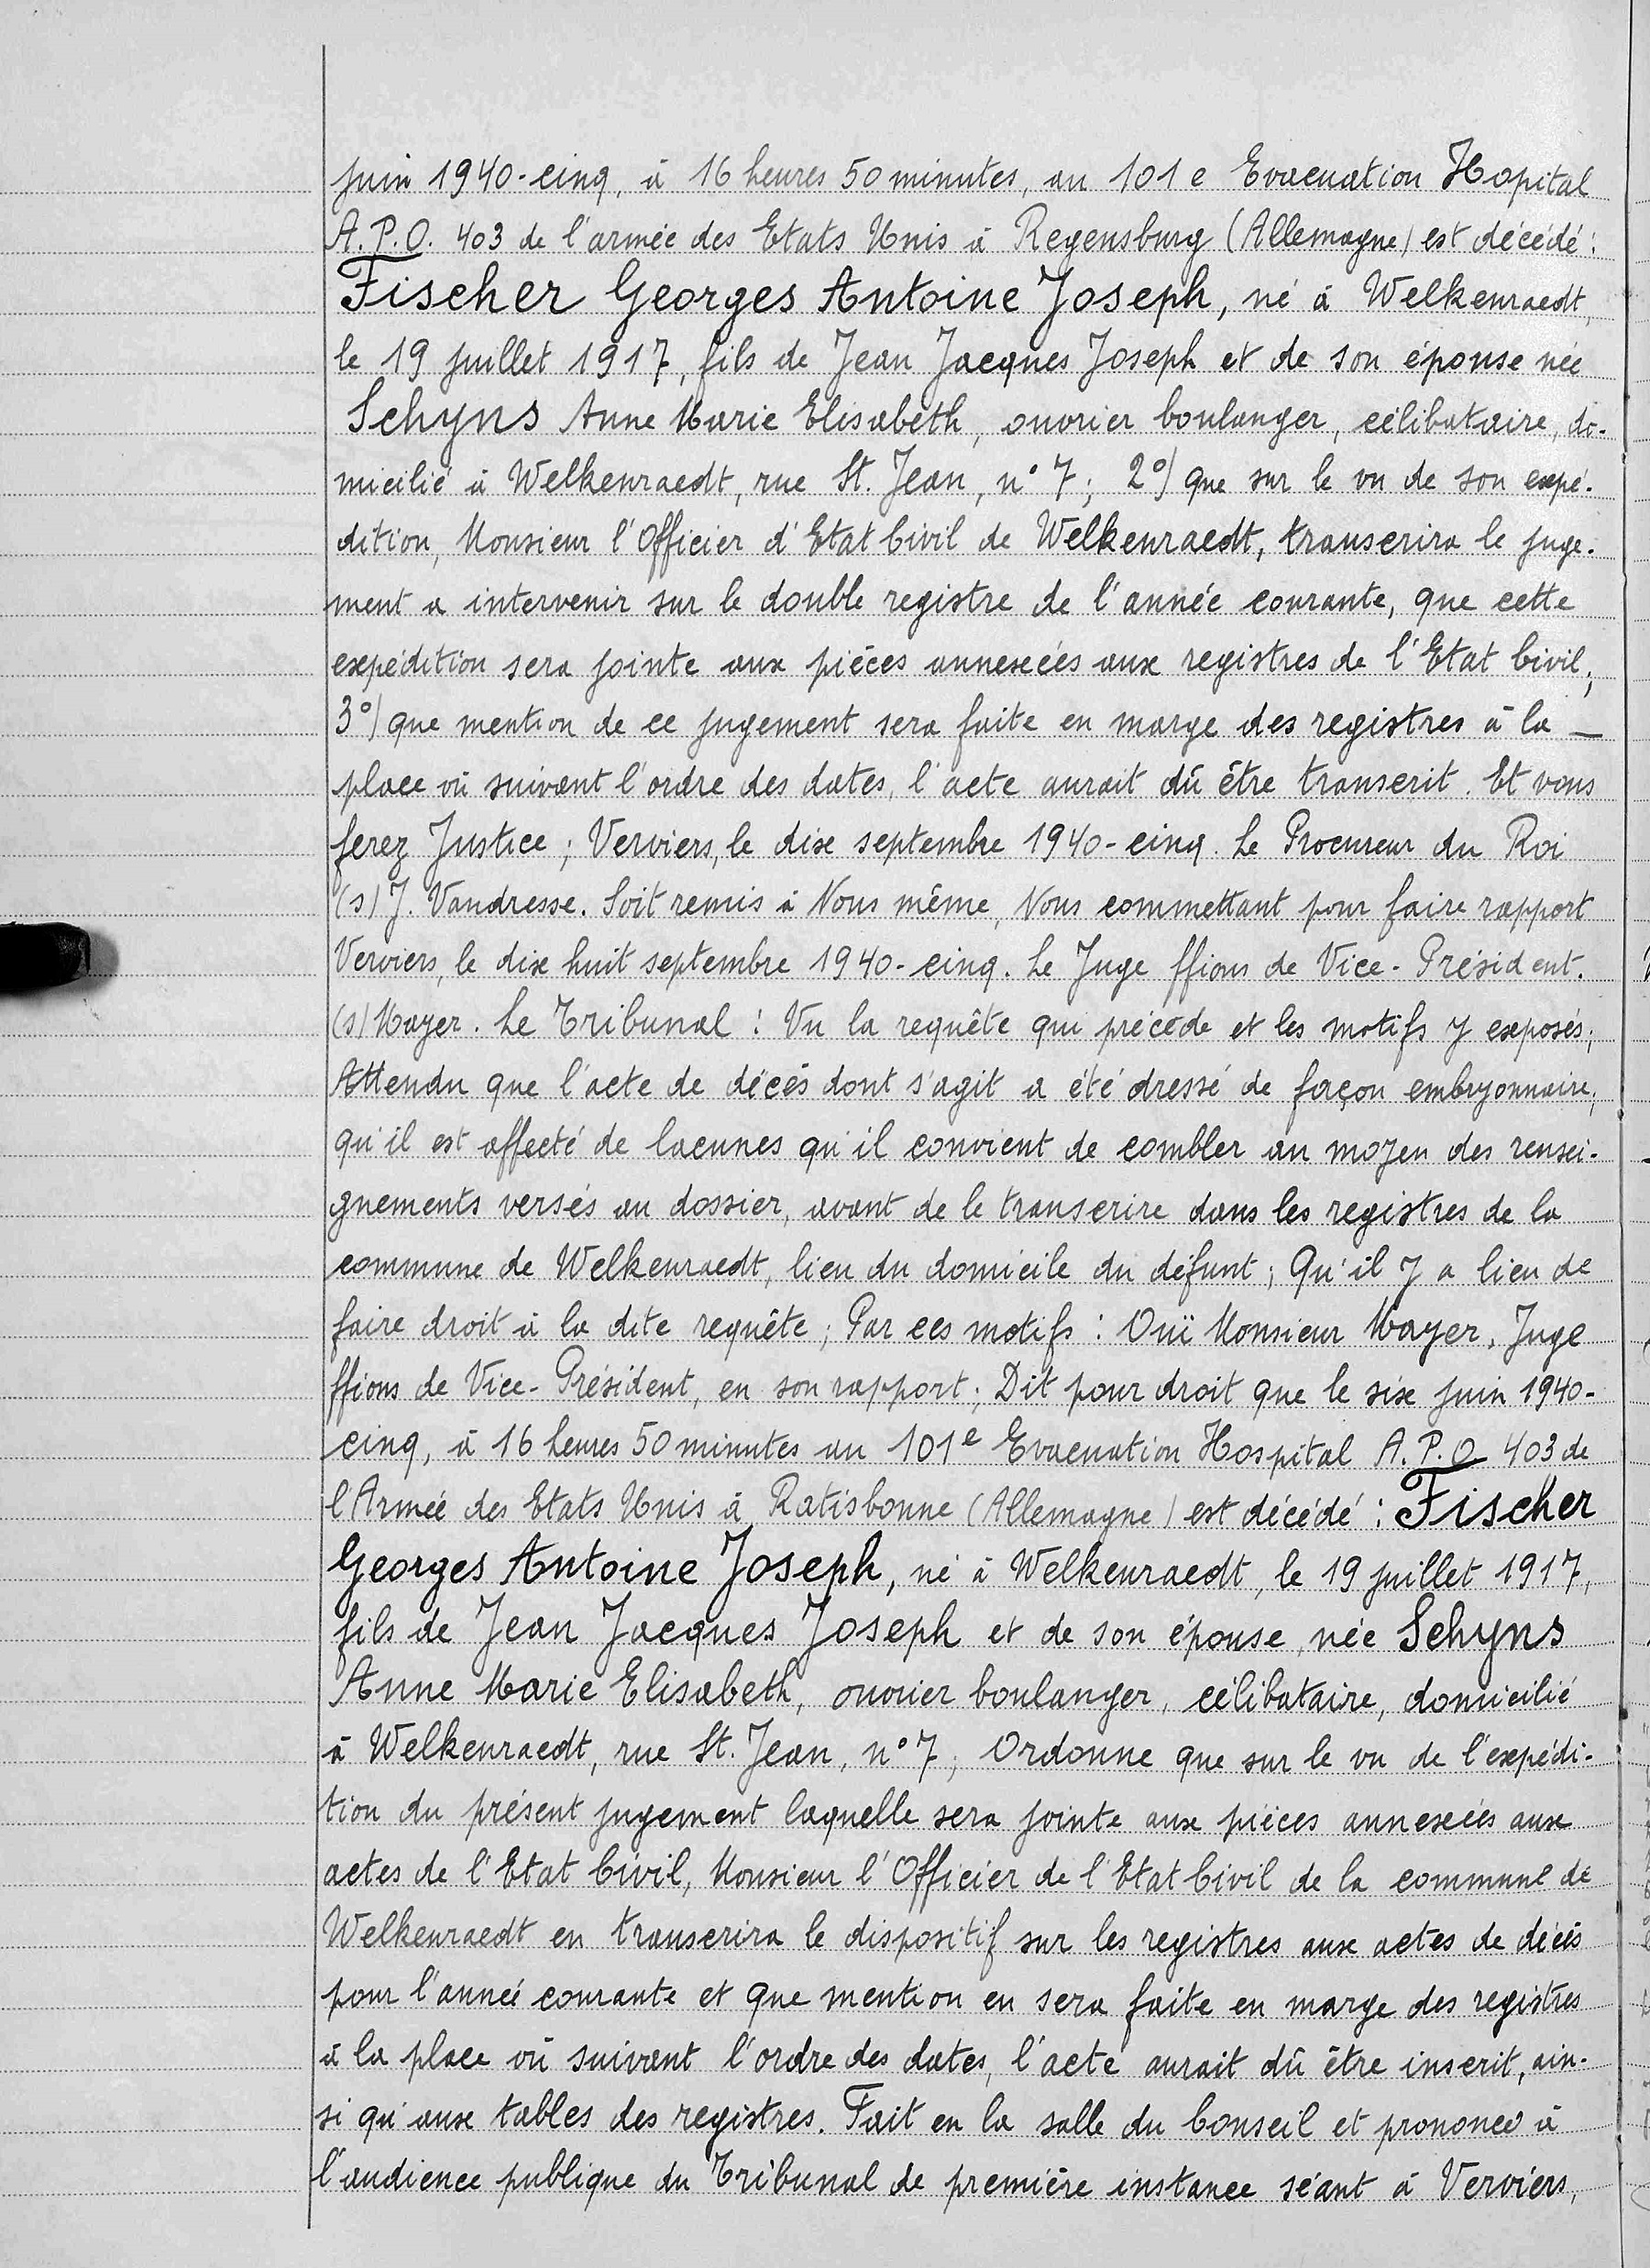 juin 1940-cinq, à 16 heures 50 minutes, au 101e Evacuation Hopital
A.P.O. 403 de l'armée des Etats Unis à Regensburg (Allemagne) est décédé :
Fischer Georges Antoine Joseph, né à Welkenraedt,
le 19 juillet 1917, fils de Jean Jacques Joseph et de son épouse née
Schyns Anne Marie Elisabeth, ouvrier boulanger, célibataire, do-
micilié à Welkenraedt, rue St. Jean, n° 7; 2°/ que sur le vu de son expé-
dition, Monsieur l'Officier d'Etat Civil de Welkenraedt, transcrira le juge-
ment a intervenir sur le double registre de l'année courante, que cette
expédition sera jointe aux pièces annexées aux registres de l'Etat Civil;
3°/ que mention de ce jugement sera faite en marge des registres à la —
place où suivant l'ordre des dates, l'acte aurait dû être transcrit. Et vous
ferez Justice; Verviers, le dix septembre 1940-cinq. Le Procureur du Roi
(s) J. Vandresse. Soit remis à Nous même, Nous commettant pour faire rapport
Verviers, le dix huit septembre 1940-cinq. Le Juge ffions de Vice-Président.
(s) Mayer. Le Tribunal : Vu la requête qui précède et les motifs y exposés;
Attendu que l'acte de décès dont s'agit a été dressé de façon embryonnaire;
qu'il est affecté de lacunes qu'il convient de combler au moyen des rensei-
gnements versés au dossier, avant de le transcrire dans les registres de la
commune de Welkenraedt, lieu du domicile du défunt; Qu'il y a lieu de
faire droit à la dite requête; Par ces motifs : Ouï Monsieur Mayer, Juge
ffions de Vice-Président, en son rapport; Dit pour droit que le six juin 1940-
cinq, à 16 heures 50 minutes au 101e Evacuation Hospital A.P.O 403 de
l'Armée des Etats Unis à Ratisbonne (Allemagne) est décédé : Fischer
Georges Antoine Joseph, né à Welkenraedt, le 19 juillet 1917,
fils de Jean Jacques Joseph et de son épouse, née Schyns
Anne Marie Elisabeth, ouvrier boulanger, célibataire, domicilié
à Welkenraedt, rue St. Jean, n° 7; Ordonne que sur le vu de l'expédi-
tion du présent jugement laquelle sera jointe aux pièces annexées aux
actes de l'Etat Civil, Monsieur l'Officier de l'Etat Civil de la commune de
Welkenraedt en transcrira le dispositif sur les registres aux actes de décès
pour l'année courante et que mention en sera faite en marge des registres
à la place où suivant l'ordre des dates, l'acte aurait dû être inscrit, ain-
si qu'aux tables des registres. Fait en la salle du Conseil et prononcé à
l'audience publique du Tribunal de première instance séant à Verviers,